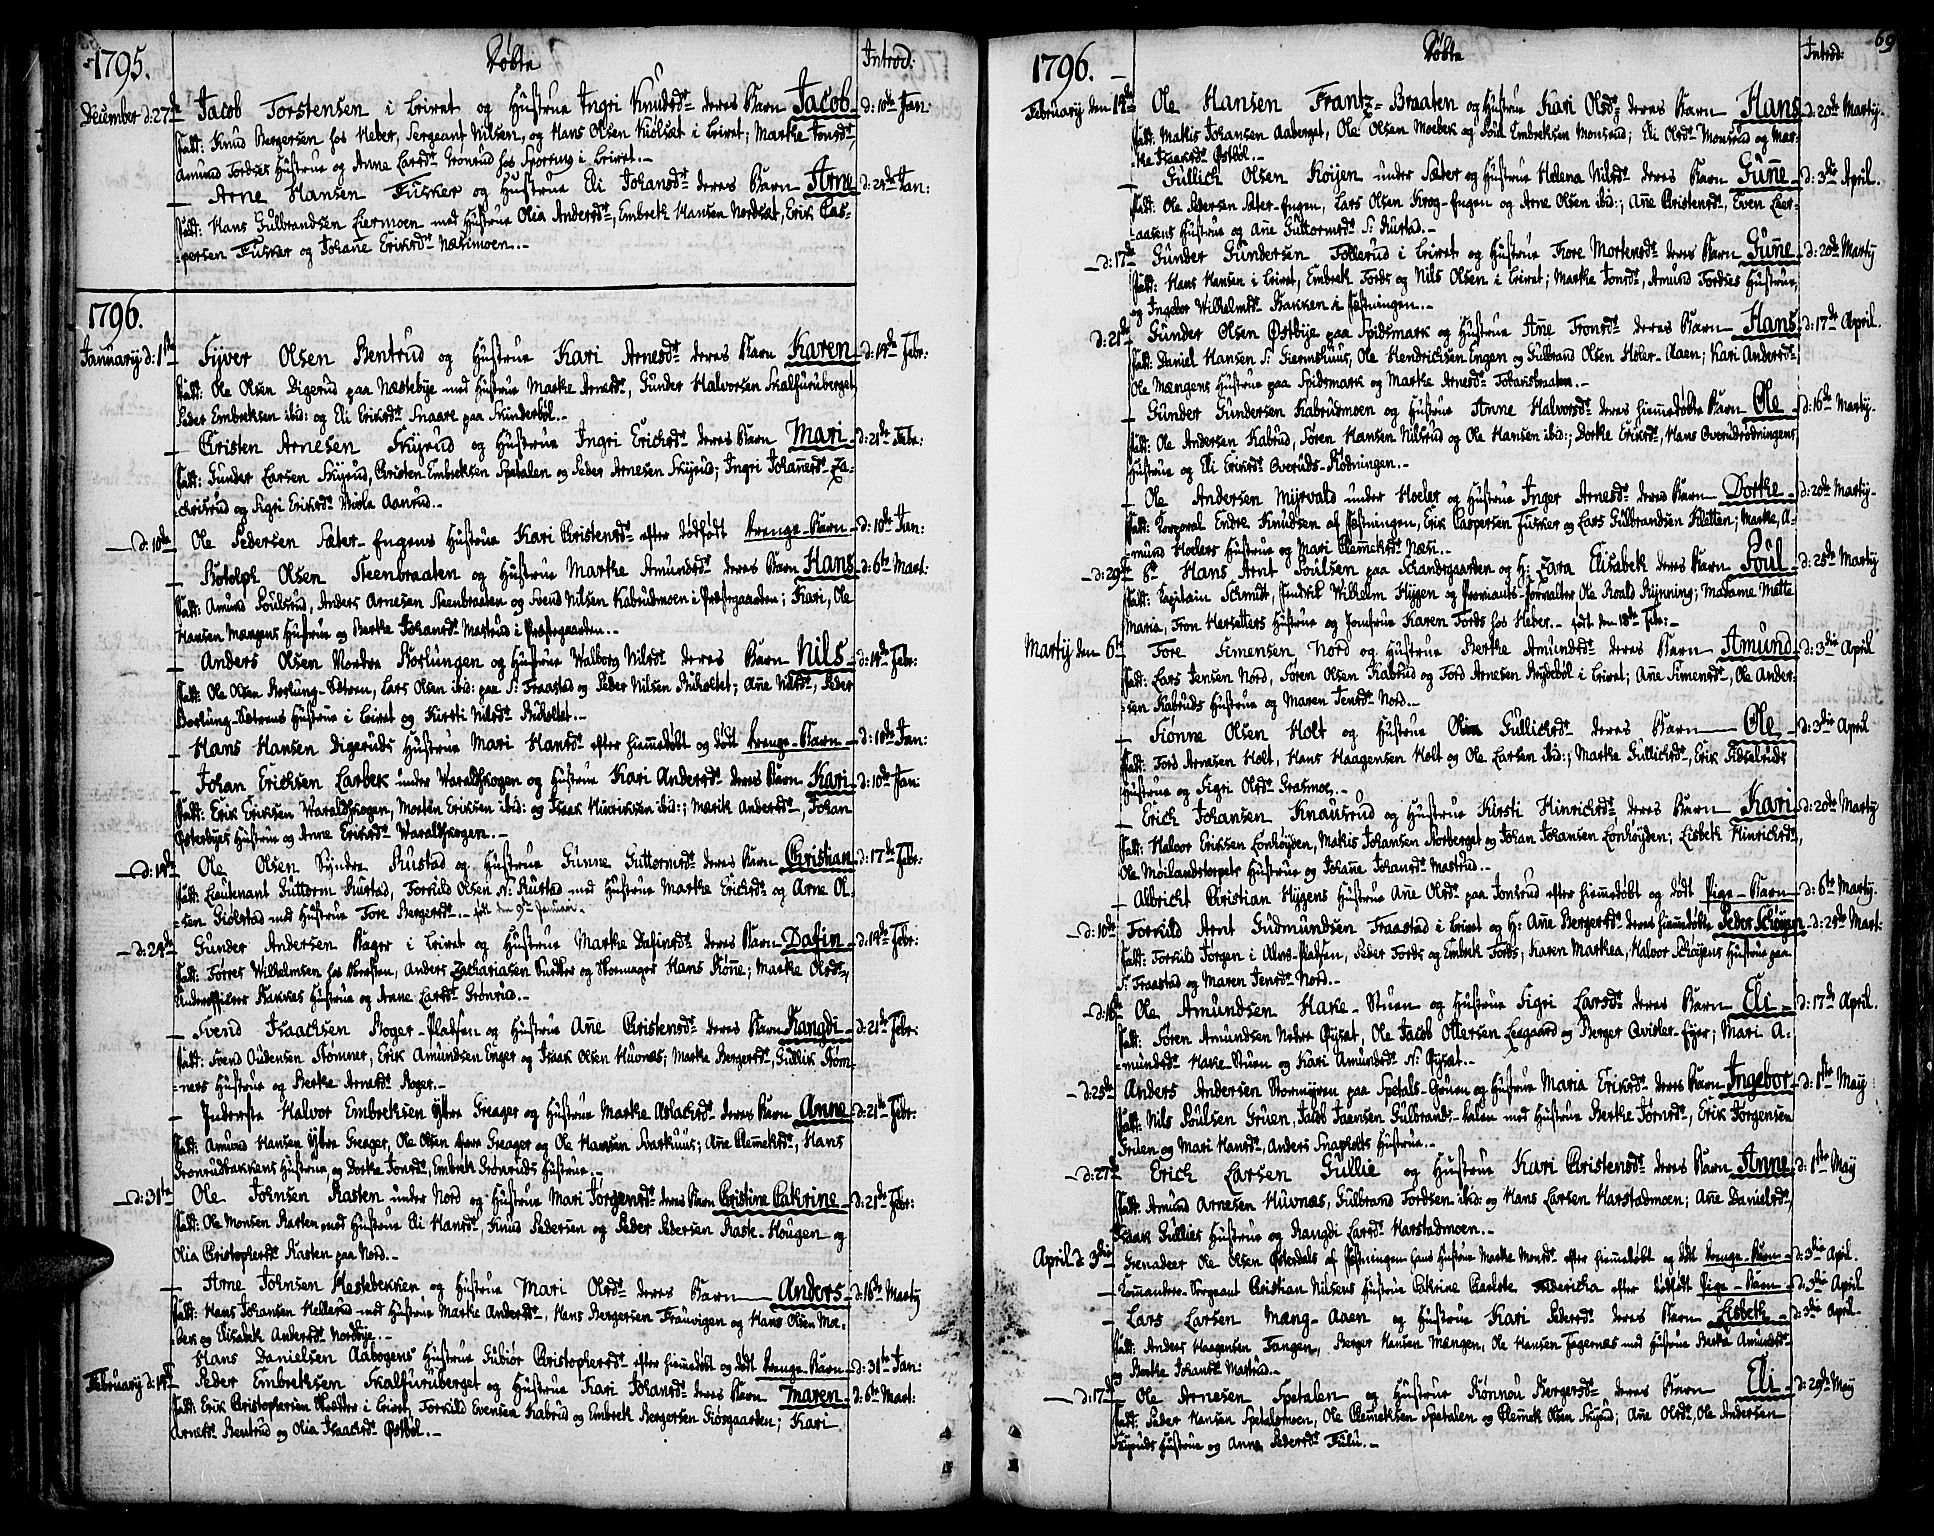 1795.
Døbte
Introd:
December d: 27de Jacob Torstensen i Leiret og Hustrue Ingri Knudsdr deres Barn Jacob d: 10de Jan:
Fadd: Knud Bergersen hos Heber, Sergeant Nilsen, og Hans Olsen Kiølsæt i Leiret; Marthe Jonsdr,
Amund Fordses Hustrue og Anne Larsdr Grønrud hos Sporting i Leiret.
Arne Hansen Fusker og Hustrue Eli Johansdr deres Barn Arne d: 24de Jan:
Fadd: Hans Gulbrandsen Liermoen med Hustrue Olia Andersdr, Embret Hansen Nordset, Erik Cas-
persen Fusker og Johane Eriksdr Næsimoen.
1796.
January d: 1ste Syver Olsen Bentrud og Hustrue Kari Arnesdr deres Barn Karen d: 14de Febr:
Fadd: Ole Olsen Digerud paa Næstebye med Hustrue Marthe Arnesdr, Gunder Halvorsen Skalfuruberget,
Peder Embretsen ibid: og Eli Eriksdr Snaare paa Skinderbøl.
Cristen Arnesen Skyrud og Hustrue Ingri Erichsdr deres Barn Mari d: 21de Febr:
Fadd: Gunder Larsen Skyrud, Christen Embretsen Spetalen og Peder Arnesen Skyrud; Ingri Johanesdr Za-
chrisrud og Sigri Eriksdr Aanrud.
d: 10de Ole Pedersen Sæter-Engens Hustrue Kari Christensdr efter dødfødt Drenge-Barn d: 10de Jan:
Botolph Olsen Steenbraaten og Hustrue Marthe Amundsdr deres Barn Hans d: 6te Mart:
Fadd: Amund Poulsrud, Anders Arnesen Steenbraaten og Svend Nilsen Kabrudmoen i Præstegaarden; Kari, Ole
Hansen Mængens Hustrue og Berthe Johansdr Mastrud i Præstegaarden.
Anders Olsen Nordre Borlungen og Hustrue Walborg Nilsdr deres Barn Nils d: 14de Febr:
Fadd: Ole Olsen Borlung-Sætren, Lars Olsen ibid: paa S: Fraastad og Peder Nilsen Bikoltet; Ane Nilsdr, Peder
Borlung-Sætrens Hustrue i Leiret og Kirsti Nilsdr Bikoltet.
Hans Hansen Digeruds Hustrue Mari Hansdr efter hiemedøbt og død Drenge-Barn d: 10de Jan:
Johan Erichsen Larbek under Waraldskogen og Hustrue Kari Andersdr deres Barn Kari d: 10de Jan:
Fadd: Erik Eriksen Waraldskogen, Morten Eriksen ibid: og Isaak Hinriksen ibid:; Mærit Andersdr, Johan
Østerbyes Hustrue og Anne Eriksdr Waraldskogen.
d: 14de Ole Olsen Syndre Rustad og Hustrue Gunne Guttormsdr deres Barn Christian d: 17de Febr:
Fadd: Lieutenant Guttorm Rustad, Torkild Olsen N: Rustad med Hustrue Marthe Erichsdr og Arne Ol-
sen Giølstad med Hustrue Tore Bergersdr. født den 9de Januari.
d: 24de Gunder Andersen Bager i Leiret og Hustrue Marthe Dafinsdr deres Barn Dafin d: 14de Febr:
Fadd: Torres Wilhelmsen hos Obersten, Anders Zachariasen Snedker og Skomager Hans Rønne; Marthe Olsdr,
Underofficer Bakkas Hustrue og Anne Larsdr Grønrud.
Svend Isaachsen Boger-Pladsen og Hustrue Ane Christensdr deres Barn Rangdi d: 21de Febr:
Fadd: Svend Oudensen Rømner, Erik Amundsen Enger og Isaak Olsen Huvnæs; Marthe Bergersdr, Gullik Røm-
ners Hustrue og Berthe Arnesdr Boger.
Inderste Halvor Embretsen Ystre Greager og Hustrue Marthe Aslachsdr deres Barn Anne d: 21de Febr:
Fadd: Amund Hansen Ystre Greager, Ole Olsen Greager og Ole Hansen Svarthuus; Ane Clemetsdr, Hans
Grønrudbakkens Hustrue, og Dorthe Jonsdr, Embret Grønruds Hustrue.
d: 31te Ole Johnsen Rasten under Nord og Hustrue Mari Jørgensdr deres Barn Christine Cathrine d: 21de Febr:
Fadd: Ole Monsen Rasten med Hustrue Eli Hansdr, Knud Pedersen og Peder Pedersen Rask-Hougen og
Olia Christophersdr Rasten paa Nord.
Arne Johnsen Hestebekken og Hustrue Mari Olsdr deres Barn Anders d: 18de Marty
Fadd: Hans Johansen Hellerud med Hustrue Marthe Andersdr, Hans Bergersen Frauvigen og Hans Olsen Moe-
bek og Elisabeth Andersdr Nordbye.
Hans Danielsen Aabogens Hustrue Gubiør Christophersdr efter hiemedøbt og død Drenge-Barn d: 31te Jan:
February d: 14de Peder Embretsen Skalfuruberget og Hustrue Kari Johansdr deres Barn Maren d: 6te Mart:
Fadd: Erik Christophersen i Leiret, Torkild Evensen Kabrud og Embret Bergersen Giøsgaarden; Kari
Arnesdr Bentrud og Olia Isaachsdr Østbøl.
69
1796.
Døbte
Introd:
February den 14de Ole Hansen Frantz-Braaten og Hustrue Kari Olsdr deres Barn Hans d: 20de Marty.
Fadd: Mathis Johansen Aaberget, Ole Olsen Moebek og Poul Embretsen Monsrud; Eli Olsdr Monsrud og Mar-
the Isaaksdr Østbøl.
Gullich Olsen Køien under Sæter og Hustrue Helena Nilsdr deres Barn Gune d: 3die April.
Fadd: Ole Pedersen Sæter-Engen, Lars Olsen Krog-Engen og Arne Olsen ibid:; Ane Christensdr, Even Leer-
aasens Hustrue og Ane Guttormsdr S: Rustad.
d: 17de Gunder Gundersen Tollerud i Leiret og Hustrue Tore Mortensdr deres Barn Gune d: 20de Marty
Fadd: Hans Hansen i Leiret, Embret Fords og Nils Olsen i Leiret; Marthe Jonsdr, Amund Fordses Hustrue,
og Ingebor Wilhelmsdr Bakken i Fæstningen.
d: 21de Gunder Olsen Østbye paa Spidsmark og Hustrue Ane Tronsdr deres Barn Hans d: 17de April.
Fadd: Daniel Hansen S: Giermshuus, Ole Hendrichsen Engen og Gulbrand Olsen Holer-Aaen; Kari Andersdr,
Ole Mængens Hustrue paa Spidsmark og Marthe Arnesdr Johansbraaten.
Gunder Gundersen Kabrudmoen og Hustrue Anne Halvorsdr deres hiemedøbte Barn Ole d: 16de Marty.
Fadd: Ole Andersen Kabrud, Søren Hansen Nilsrud og Ole Hansen ibid:; Dorthe Eriksdr, Hans Overudrødningens
Hustrue og Eli Eriksdr Overuds-Rødningen.
Ole Andersen Myrvald under Hoeler og Hustrue Inger Arnesdr deres Barn Dorthe d: 20de Marty
Fadd: Korporal Endre Knudsen af Fæstningen, Erik Caspersen Fusker og Lars Gulbrandsen Kletten; Marthe, A-
mund Hoelers Hustrue og Mari Clemetsdr Næsi.
d: 29de Hr Hans Arnt Poulsen paa Schandsgaarden og H: Zara Elisabeth deres Barn Poul d: 25de Marty
Fadd: Kapitain Schmidt, Wilhelm Hiygen og Proviants-Forvalter Ole Roald Rynning; Madame Mette
Maria, Tron Hersetters Hustrue og Jomfrue Karen Fords hos Heber. født den 18de Febr:
Marty den 6te Tore Simensen Nord og Hustrue Berthe Amundsdr deres Barn Amund d: 3die April
Fadd: Lars Jensen Nord, Søren Olsen Kabrud og Tord Arnesen Brydebøl i Leiret; Ane Simensdr, Ole Ander-
sen Kabruds Hustrue og Maren Jensdr Nord.
Tiønne Olsen Holt og Hustrue Olia Gullichsdr deres Barn Ole d: 3die April
Fadd: Tord Arnesen Holt, Hans Haagensen Holt og Ole Larsen ibid:; Marthe Gullichsdr, Erik Tidselruds
Hustrue og Sigri Olsdr Grasmoe.
Erich Johansen Knausrud og Hustrue Kirsti Hinrichsdr deres Barn Kari d: 20de Marty
Fadd: Halvor Eriksen Lonhøyden, Mathis Johansen Norberget og Johan Johansen Lonhøyden; Lisbeth Hinrichsdr,
Ole Møilandstorpets Hustrue og Johane Johansdr Mastrud.
Albricht Christian Hygens Hustrue Ane Olsdr paa Jonsrud efter hiemedøbt og død Pige-Barn d: 6te Marty.
d: 10de Torkild Arnt Gudmundsen Fraastad i Leiret og H: Ane Bergersdr deres hiemedøbte Peder Schøyen d: 24de Mart:
Fadd: Torkild Jørgen i Alms-Pladsen, Peder Fords og Embret Fords; Karen Marthea, Halvor Schøyens Hustrue paa
S: Fraastad og Maren Jensdr Nord.
d: 16de Ole Amundsen Hake-Stuen og Hustrue Sigri Larsdr deres Barn Eli d: 17de April.
Fadd: Søren Amundsen Nedre Øysæt, Ole Jacob Ottersen Leegaard og Berger Qvisler-Eyer; Mari A-
mundsdr Hake-Stuen og Kari Amundsdr N: Øysæt.
d: 25de Anders Andersen Stormyren paa Spetals-Gruen og Hustrue Maria Eriksdr deres Barn Ingebor d: 1ste May
Fadd: Nils Poulsen Gruen, Jacob Jaensen Gulbrands- med Hustrue Berthe Jørnsdr, Erik Jørgensen
Gruen og Mari Hansdr, Anders Snapholts Hustrue.
d: 27de Erich Larsen Gullie og Hustrue Kari Christensdr deres Barn Anne d: 1ste May
Fadd: Amund Arnesen Huvnæs, Gulbrand Tordsen ibid: og Hans Larsen Harstadmoen; Ane Danielsdr,
Isaak Gullies Hustrue og Rangdi Larsdr Harstadmoen.
April d: 3die Grenadeer Ole Olsen Østerdals af Fæstningen hans Hustrue Marthe Monsdr efter hiemedøbt og død Drenge-Barn d: 3die April.
Commandeer-Sergeant Christian Nilsens Hustrue Cathrine Charlotte Fredericka efter dødfødt Pige-Barn d: 3die April
Lars Larsen Mæng-Aaen og Hustrue Kari Pedersdr deres Barn Lisbeth d: 3die April.
Fadd: Anders Haagensen Tangen, Berger Hansen Mængen, Ole Hansen Tagernæs med Hustrue Berthe Amundsdr
og Berthe Johansdr Mastrud.
d: 17de Ole Arnesen Spetalen og Hustrue Rønnou Bergersdr deres Barn Eli d: 29de May
Fadd: Peder Hansen Spetalsmoen, Ole Clemetsen Spetalen og Clemet Olsen Skyrud; Ane Olsdr, Ole Andersen
Skyruds Hustrue og Anne Pedersdr Fulu.